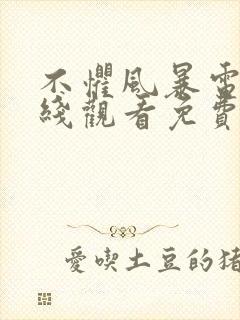 不懼風暴電
綫觀看免費
愛喫土豆的猪